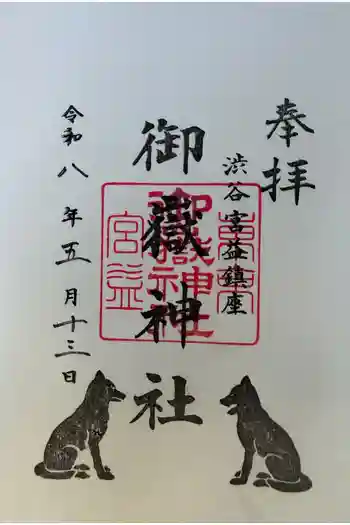 奉拝
渋谷宮益鎮座
御嶽神社
令和八年五月十三日
東京
御嶽神社
宮益